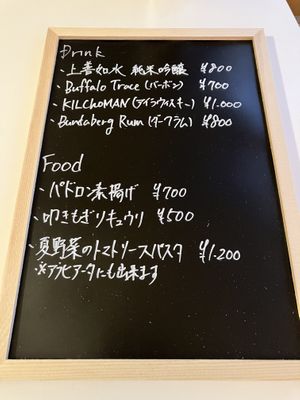 Drink
・上善如水 純米吟醸 ¥800
・Buffalo Trace (バーボン) ¥700
・KILCHOMAN (アイラウィスキー) ¥1.000
・Bundaberg Rum (ダークラム) ¥800
Food
・パドロン素揚げ ¥700
・叩きもぎりキュウリ ¥500
・夏野菜のトマトソースパスタ ¥1.200
※アラビアータにも出来ます